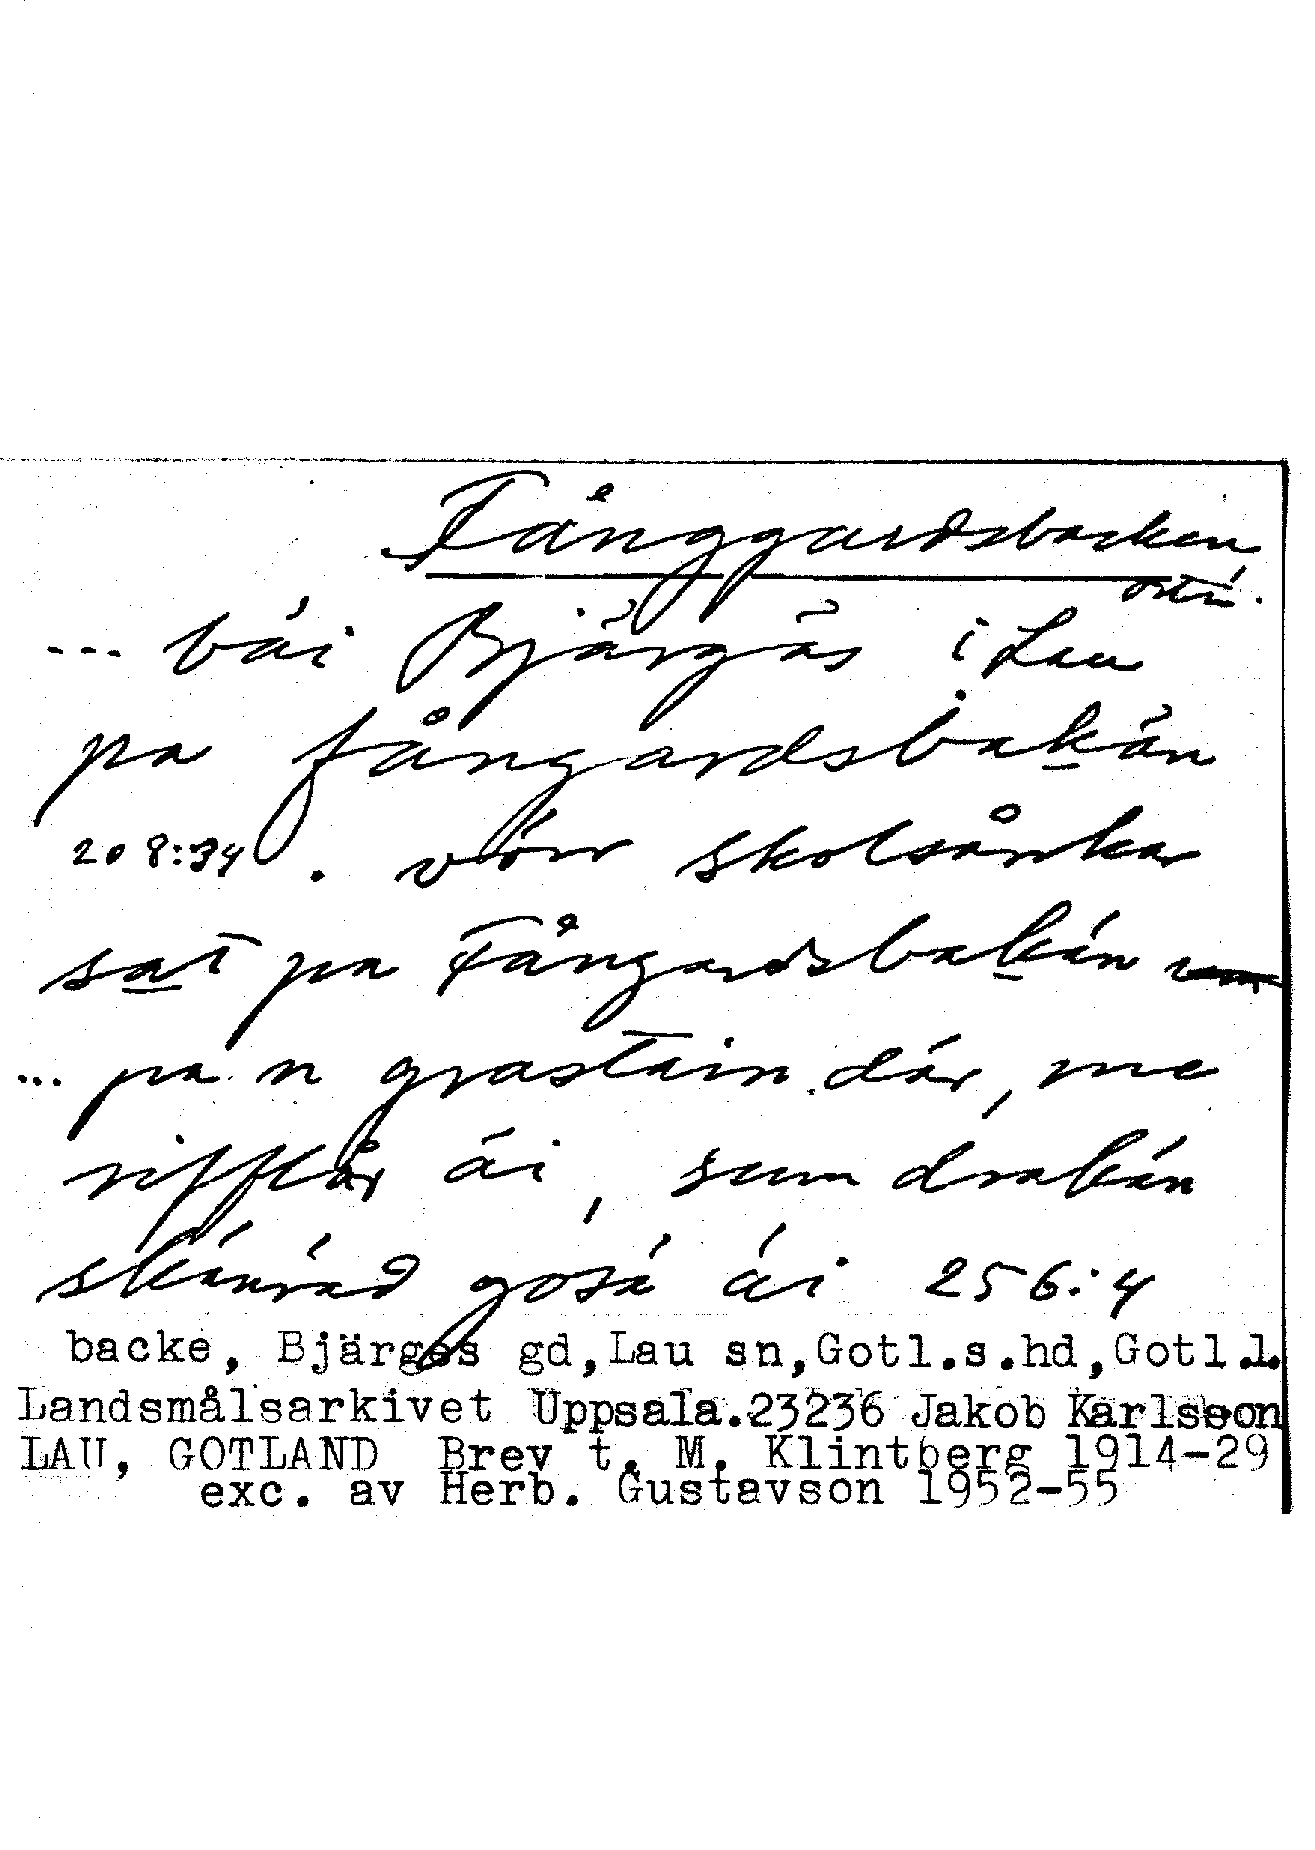 Fånggardsbacken
ortn.
... bäi Bjärgäs i Lau
pa fångardsbakän
208:34 . vörr skolsårkar
sat pa Fångardsbakän
... pa n grastäin där, me
rifflår äi, sum drakän
skänräd gosä äi 256:4
backe, Bjärges gd, Lau sn, Gotl.s.hd, Gotl.l.
Landsmålsarkivet Uppsala. 23236 Jakob Karlsson
LAU, GOTLAND Brev t. M. Klintberg 1914-29
exc. av Herb. Gustavson 1952-55